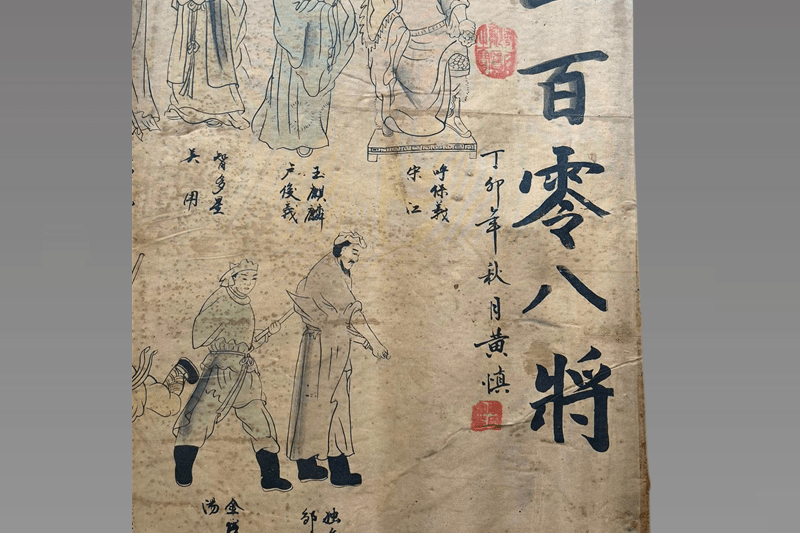 百零八將
丁卯年秋月黄慎
呼保義
宋江
玉麒麟
卢俊義
智多星
吴用